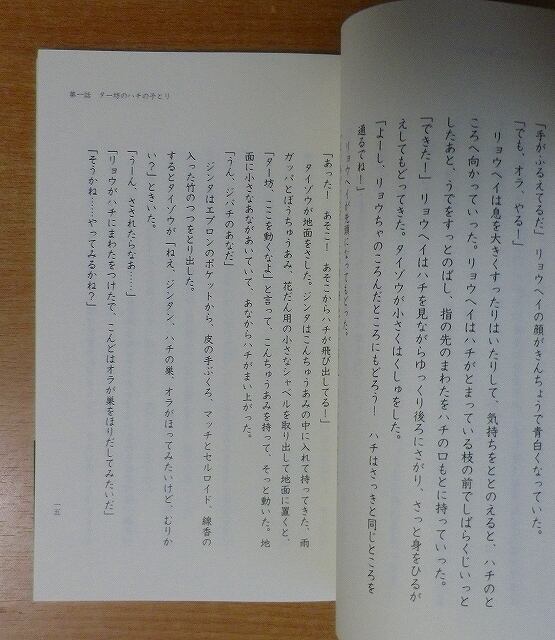 「手がふるえてるだ」リョウヘイの顔がきんちょうで青白くなっていた。
「でも、オラ、やる！」
リョウヘイは息を大きくすったりはいたりして、気持ちをととのえると、ハチのと
ころへ向かっていった。リョウヘイはハチがとまっている枝の前でしばらくじいっと
したあと、うでをすっとのばし、指の先のまわたをハチの口もとに持っていった。
「できたー！」リョウヘイはハチを見ながらゆっくり後ろにさがり、さっと身をひるが
えしてもどってきた。タイゾウが小さくはくしゅをした。
「よーし、リョウちゃのころんだところにもどろう！　ハチはさっきと同じところを
通るでね！」
第一話　ター坊のハチの子とり
「あった！　あそこ！　あそこからハチが飛び出してる！」
タイゾウが地面をさした。ジンタはこんちゅうあみの中に入れて持ってきた、雨
ガッパとぼうちゅうあみ、花だん用の小さなシャベルを取り出して地面に置くと、
「ター坊、ここを動くなよ」と言って、こんちゅうあみを持って、そっと動いた。地
面に小さなあながあいていて、あなからハチがまい上がった。
「うん、ジバチのあなだ」
ジンタはエプロンのポケットから、皮の手ぶくろ、マッチとセルロイド、線香の
入った竹のつつをとり出した。
するとタイゾウが「ねえ、ジンタン、ハチの巣、オラがほってみたいけど、むりか
い？」ときいた。
「うーん、さされたらなあ……」
「リョウがハチにまわたをつけたで、こんどはオラが巣をほりだしてみたいだ」
「そうかね……やってみるかね？」
一五